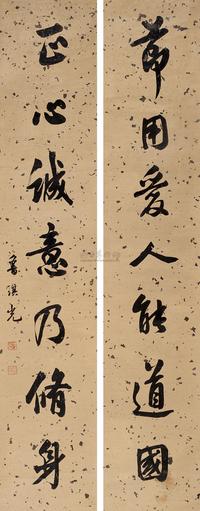 節用愛人能道國
正心誠意乃脩身
魯琪光